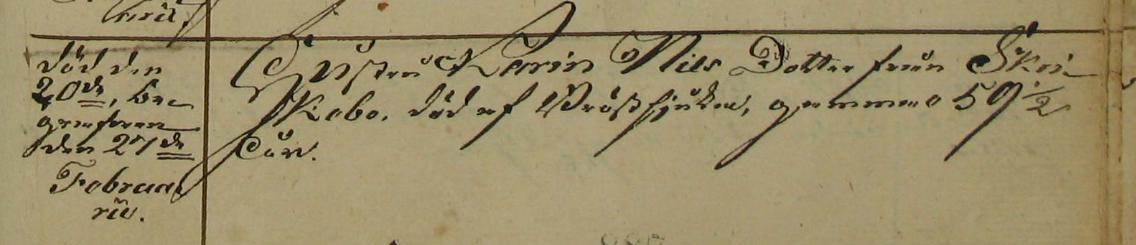 död den
20de, be-
grafven
den 27de
Februa-
rii.
Hustru Karin Nils Dotter från Skri-
kebo, död af Bröstsjukdom, gammal 59 1/2
år.